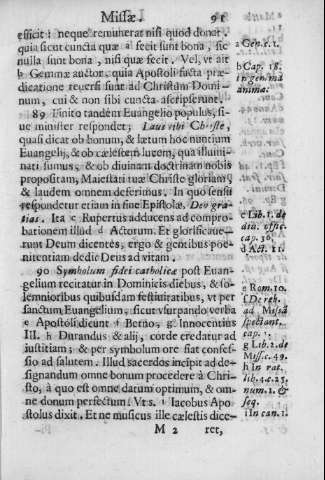 Missæ. 91
efficit: neque remunerat nisi quod donat,
quia sicut cuncta quæ a fecit sunt bona, sic
nulla sunt bona, nisi quæ fecit. Vel, vt ait
b Gemmæ auctor, quia Apostoli facta præ-
dicatione reuersi sunt ad Christum Domi-
num, cui & non sibi cuncta ascripserunt.
89 Finito tandem Euangelio populus, si-
ue minister respondet; Laus tibi Christe,
quasi dicat ob bonum, & lætum hoc nuntium
Euangelij, & ob cælestem lucem, qua illumi-
nati sumus, & ob diuinam doctrinam nobis
propositam, Maiestati tuæ Christe gloriam,
& laudem omnem deferimus. In quo sensu
respondetur etiam in fine Epistolæ. Deo gra-
tias. Ita c Rupertus adducens ad compro-
bationem illud d Actorum. Et glorificaue-
runt Deum dicentes, ergo & gentibus poe-
nitentiam dedit Deus ad vitam.
90 Symbolum fidei catholicæ post Euan-
gelium recitatur in Dominicis diebus, & so-
lemnioribus quibusdam festiuitatibus, vt per
sanctum Euangelium, sicut vsurpando verba
e Apostoli dicunt f Berno, g Innocentius
III. h Durandus & alij, corde credatur ad
iustitiam; & per symbolum ore fiat confes-
sio ad salutem. Illud sacerdos incipit ad de-
signandum omne bonum procedere à Chri-
sto, à quo est omne datum optimum, & om-
ne donum perfectum. Vt S. i Iacobus Apo-
stolus dixit. Et ne musicus ille cælestis dice-
M 2 ret,
a Gen. c. 1.
b Cap. 18.
in gemma
animæ.
c Lib. 1. de
diu. offic.
cap. 36.
d Act. 11.
e Rom. 10.
f De reb.
ad Missã
spectant.
cap.
g Lib. 2. de
Miss. c. 49.
h in rat.
lib. 4. c. 25.
num. 2. &
seq.
i In can. 1.